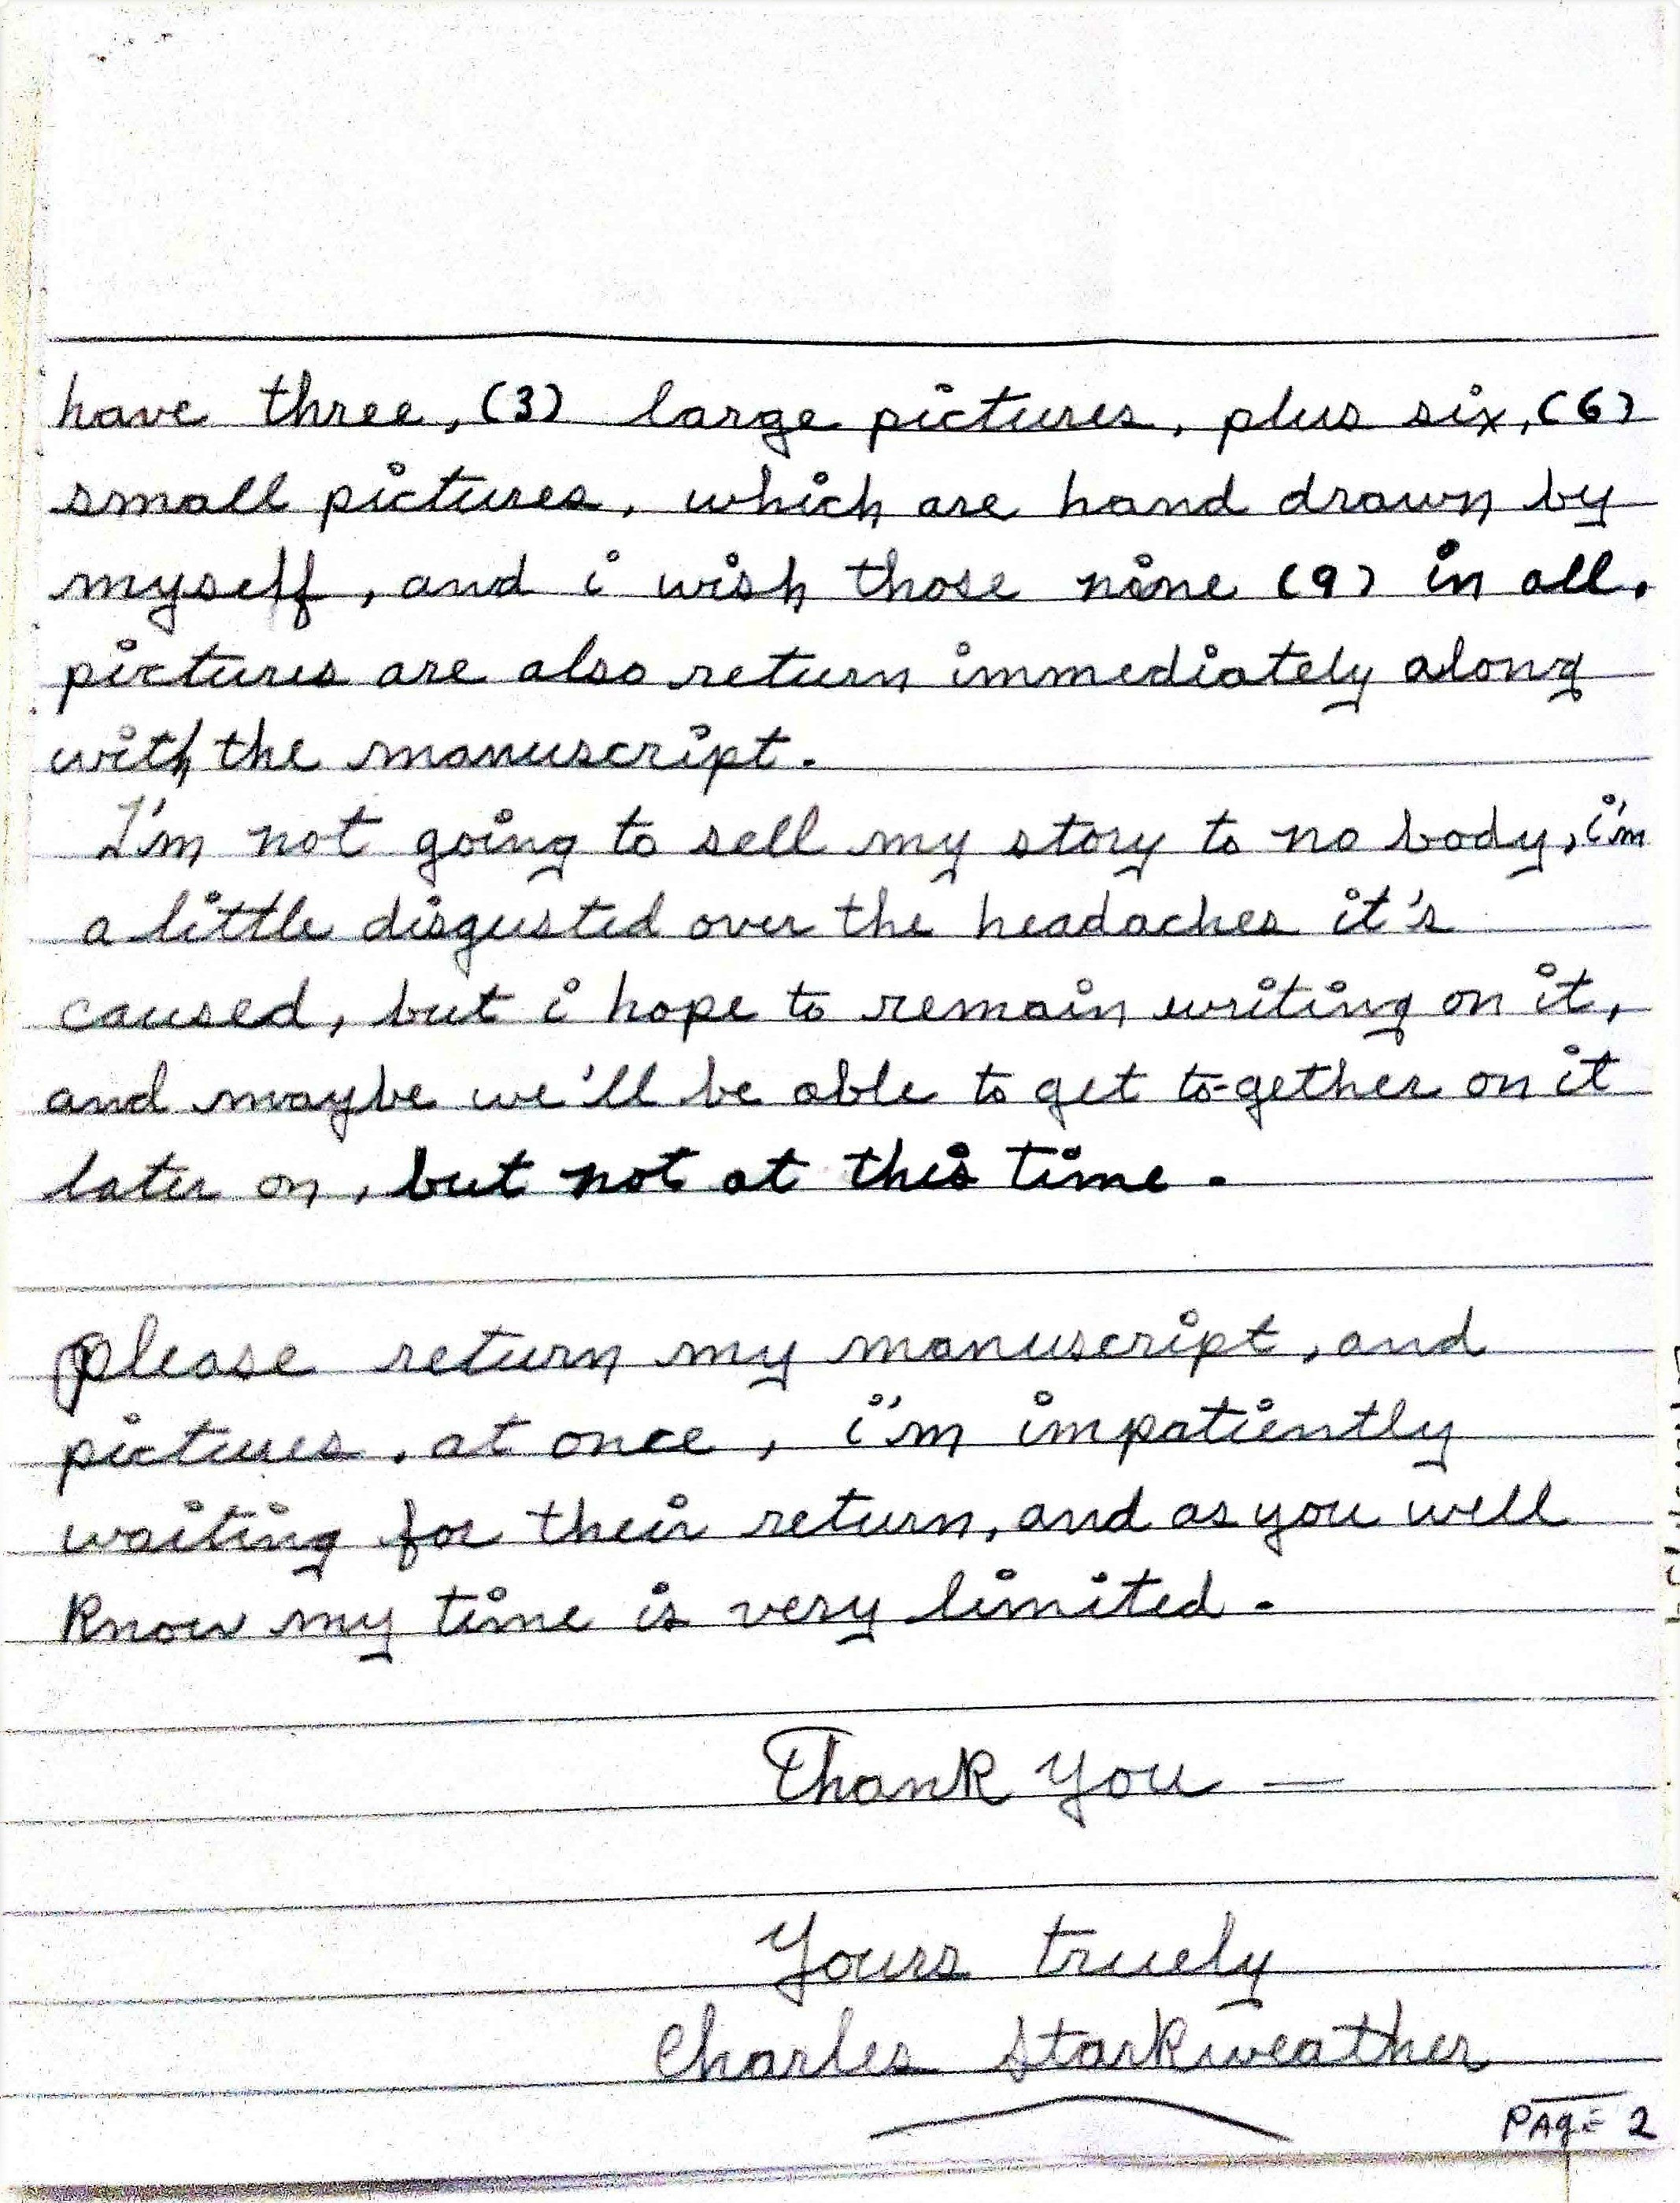 have three, (3) large pictures, plus six, (6)
small pictures, which are hand drawn by
myself, and i wish those nine (9) in all,
pictures are also return immediately along
with the manuscript.
I'm not going to sell my story to no body, i'm
a little disgusted over the headaches it's
caused, but i hope to remain writing on it,
and maybe we'll be able to get to-gether on it
later on, but not at this time.
please return my manuscript, and
pictures, at once, i'm impatiently
waiting for their return, and as you well
Know my time is very limited.
Thank you —
Yours truely
Charles Starkweather
PAge 2